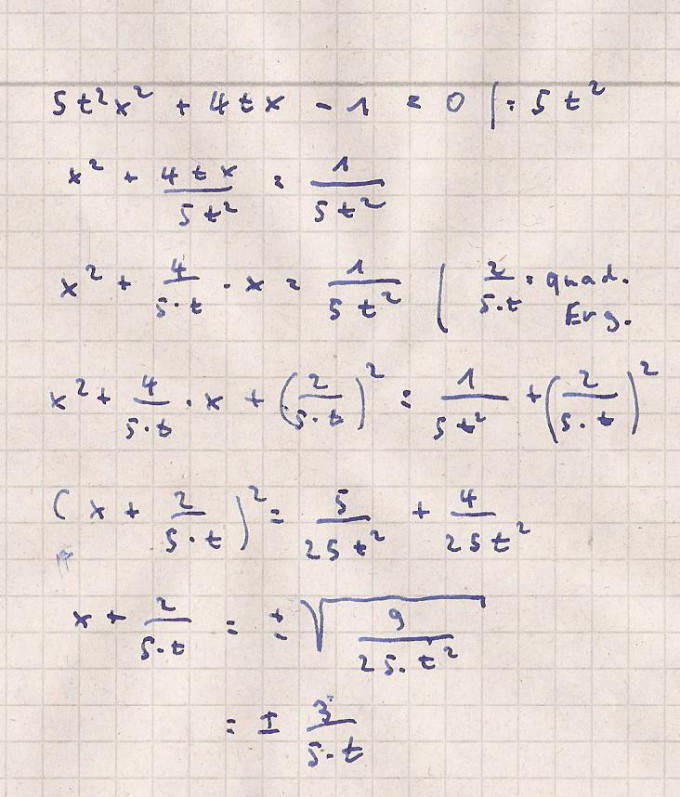 5t²x² + 4tx - 1 = 0 |: 5t²
x² + 4tx/5t² = 1/5t²
x² + 4/5·t · x = 1/5t² | 2/5·t = quad. Erg.
x² + 4/5·t · x + (2/5·t)² = 1/5t² + (2/5·t)²
(x + 2/5·t)² = 5/25t² + 4/25t²
x + 2/5·t = ± √9/25·t²
= ± 3/5·t